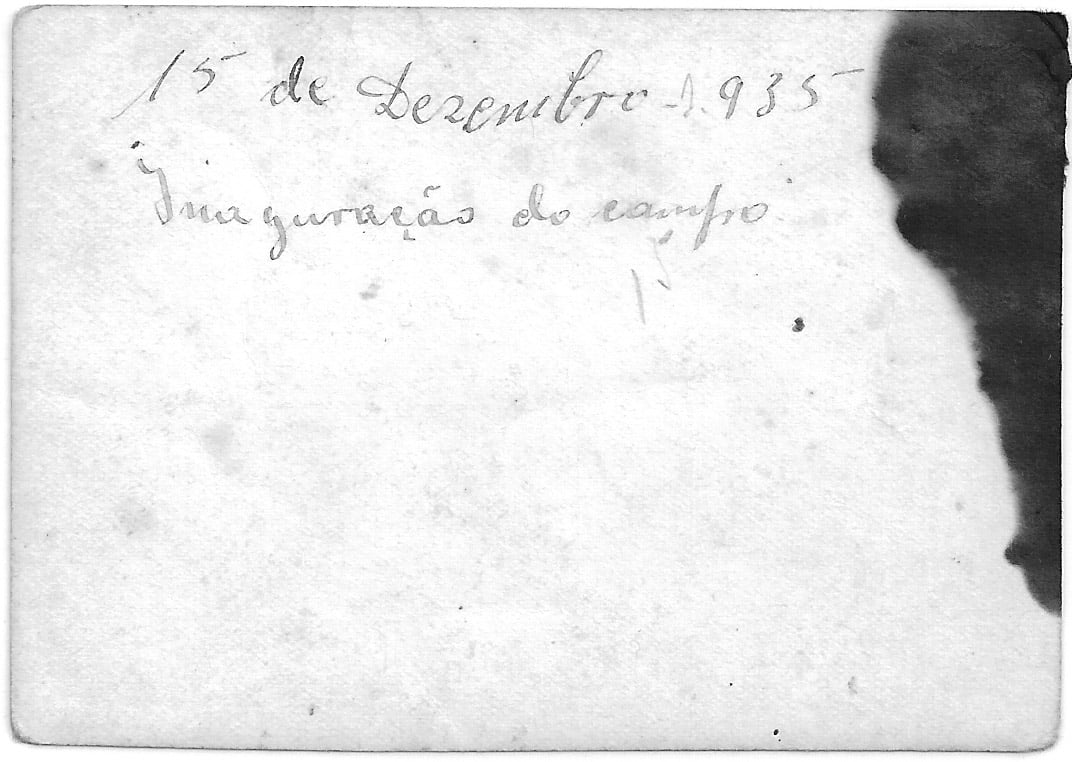 15 de Dezembro 1.935
Inauguração do campo
15